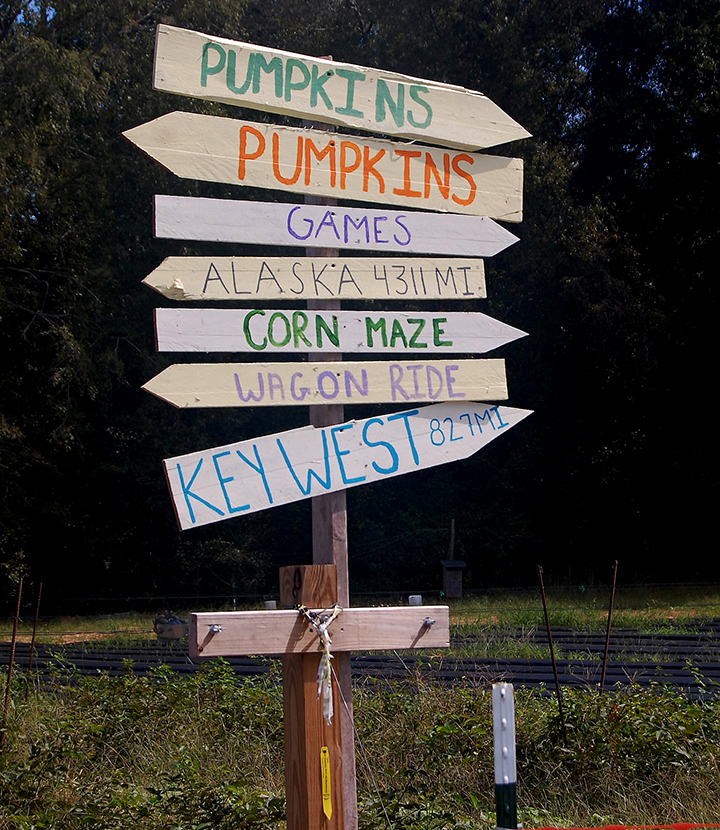 PUMPKINS
PUMPKINS
GAMES
ALASKA 4311 MI.
CORN MAZE
WAGON RIDE
KEY WEST 827 MI